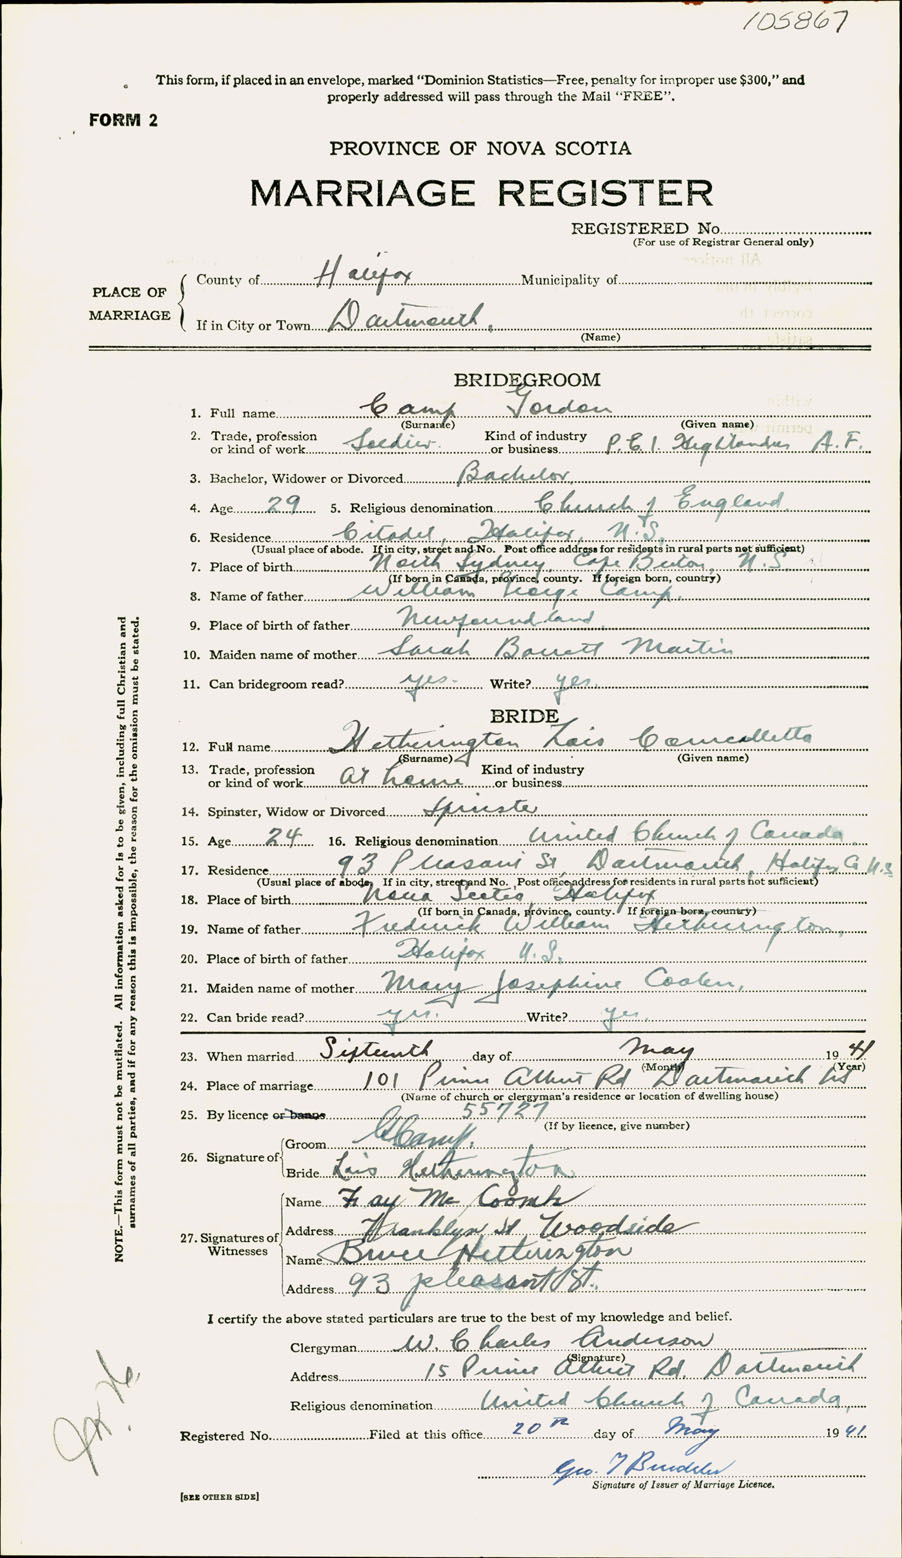 105867
This form, if placed in an envelope, marked "Dominion Statistics—Free, penalty for improper use $300," and
properly addressed will pass through the Mail "FREE".
FORM 2
PROVINCE OF NOVA SCOTIA
MARRIAGE REGISTER
REGISTERED No.
(For use of Registrar General only)
PLACE OF MARRIAGE
County of Halifax Municipality of
If in City or Town Dartmouth,
(Name)
BRIDEGROOM
1. Full name Camp Gordon
(Surname) (Given name)
2. Trade, profession or kind of work Soldier. Kind of industry or business P.E.I. Highlanders A.F.
3. Bachelor, Widower or Divorced Bachelor,
4. Age 29 5. Religious denomination Church of England.
6. Residence Citadel, Halifax, N.S.
(Usual place of abode. If in city, street and No. Post office address for residents in rural parts not sufficient)
7. Place of birth North Sydney, Cape Breton, N.S.
(If born in Canada, province, county. If foreign born, country)
8. Name of father William George Camp.
9. Place of birth of father Newfoundland.
10. Maiden name of mother Sarah Barrett Martin
11. Can bridegroom read? yes. Write? yes.
BRIDE
12. Full name Hetherington Lois
(Surname) (Given name)
13. Trade, profession or kind of work at home Kind of industry or business
14. Spinster, Widow or Divorced Spinster
15. Age 24 16. Religious denomination United Church of Canada
17. Residence 93 Pleasant St, Dartmouth, Halifax Co N.S.
(Usual place of abode. If in city, street and No. Post office address for residents in rural parts not sufficient)
18. Place of birth Nova Scotia, Halifax
(If born in Canada, province, county. If foreign born, country)
19. Name of father Frederick William Hetherington,
20. Place of birth of father Halifax N.S.
21. Maiden name of mother Mary Josephine Coolen,
22. Can bride read? yes. Write? yes.
23. When married Sixteenth day of May 1941
(Month) (Year)
24. Place of marriage 101 Prince Albert Rd Dartmouth NS
(Name of church or clergyman's residence or location of dwelling house)
25. By licence or banns 55727
(If by licence, give number)
26. Signature of
Groom GCamp.
Bride Lois Hetherington
27. Signatures of Witnesses
Name Fay Mc Coomb
Address Franklyn St Woodside
Name Bruce Hetherington
Address 93 pleasant St.
I certify the above stated particulars are true to the best of my knowledge and belief.
Clergyman W. Charles Anderson
(Signature)
Address 15 Prince Albert Rd. Dartmouth
Religious denomination United Church of Canada,
Registered No. Filed at this office 20th day of May 1941
Geo. T
Signature of Issuer of Marriage Licence.
[SEE OTHER SIDE]
NOTE.—This form must not be mutilated. All information asked for is to be given, including full Christian and
surnames of all parties, and if for any reason this is impossible, the reason for the omission must be stated.